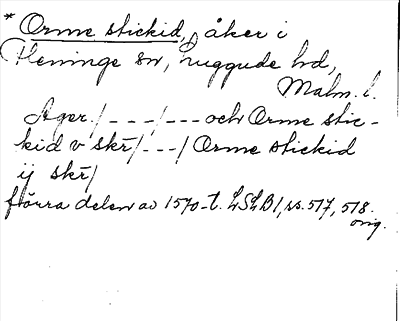 * Orme stickid, åker i
Fleninge sn, Luggude hd,
Malm. l.
Ager /---/--- och Orme stic-
kid v skr/---/ Orme stickid
ij skr/
förra delen av 1570-t. LSLB 1, ss. 517, 518.
orig.